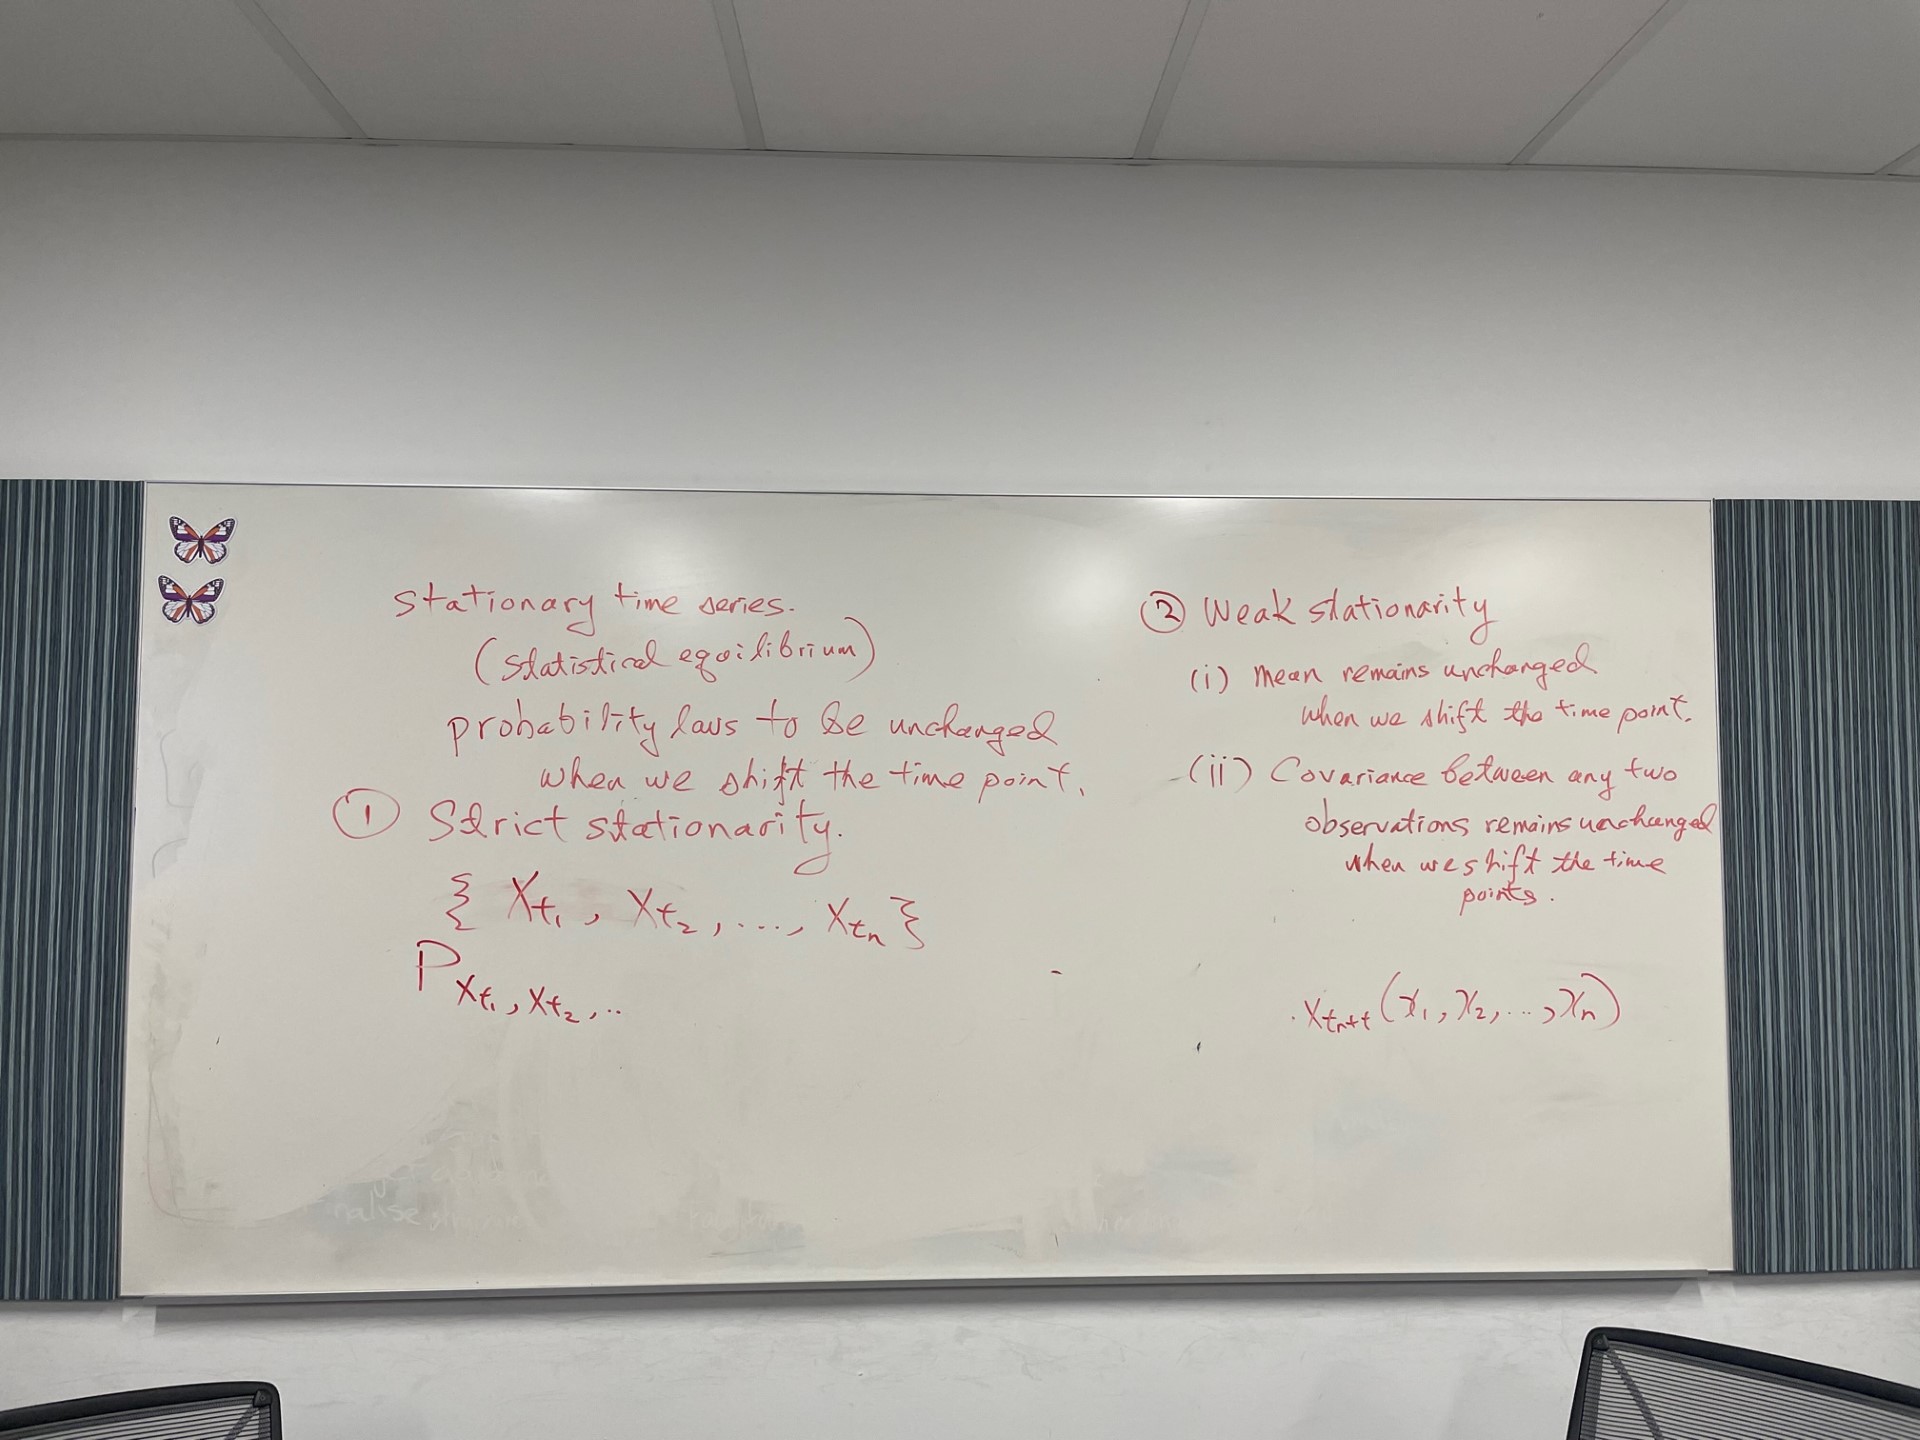 stationary time series.
(statistical equilibrium)
probability laws to be unchanged
when we shift the time point.
① Strict stationarity.
{ Xt₁, Xt₂, ..., Xtₙ }
P Xt₁, Xt₂, ..
② Weak stationarity
(i) mean remains unchanged
when we shift the time point.
(ii) Covariance between any two
observations remains unchanged
when we shift the time
points.
. Xtₙ+t (x₁, x₂, ..., xₙ)
nalise